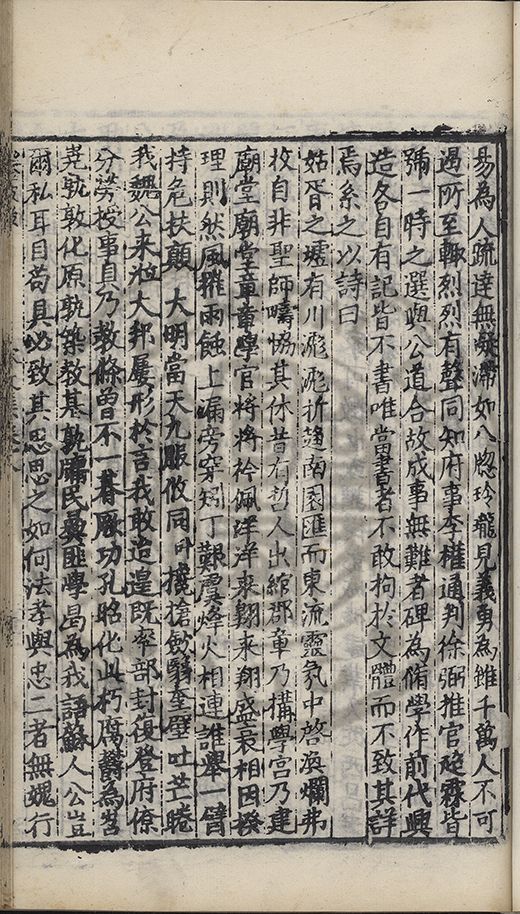 易為人疏達無凝滯如八牕玲瓏見義勇為雖千萬人不可
過所至輒烈烈有聲同知府事李權通判徐弼推官趙霖皆
號一時之選與公道合故成事無難者碑為脩學作前代興
造各自有記皆不書唯當書者不敢拘於文體而不致其詳
焉系之以詩曰
姑胥之墟有川瀰瀰折趨南園匯而東流靈氣中啓演爛弗
收自非聖師疇協其休昔有哲人出綰郡章乃搆學宮乃建
廟堂廟堂章學官將將衿佩洋洋來翺來翔盛衰相因揆
理則然風摧雨蝕上漏旁穿矧丁艱虞烽火相連誰舉一臂
持危扶顛大明當天九服攸同攙搶斂翳奎璧吐芒睠
我魏公來涖大邦屢形於言我敢迨遑既率部封復登府僚
分勞授事具乃教條曾不一朞厥功孔昭化此朽腐欝為岧
嶤孰敦化原孰築教基孰牖民彝匪學曷為我語蘇人公豈
爾私耳目苟具必致其思思之如何法孝與忠二者無媿行